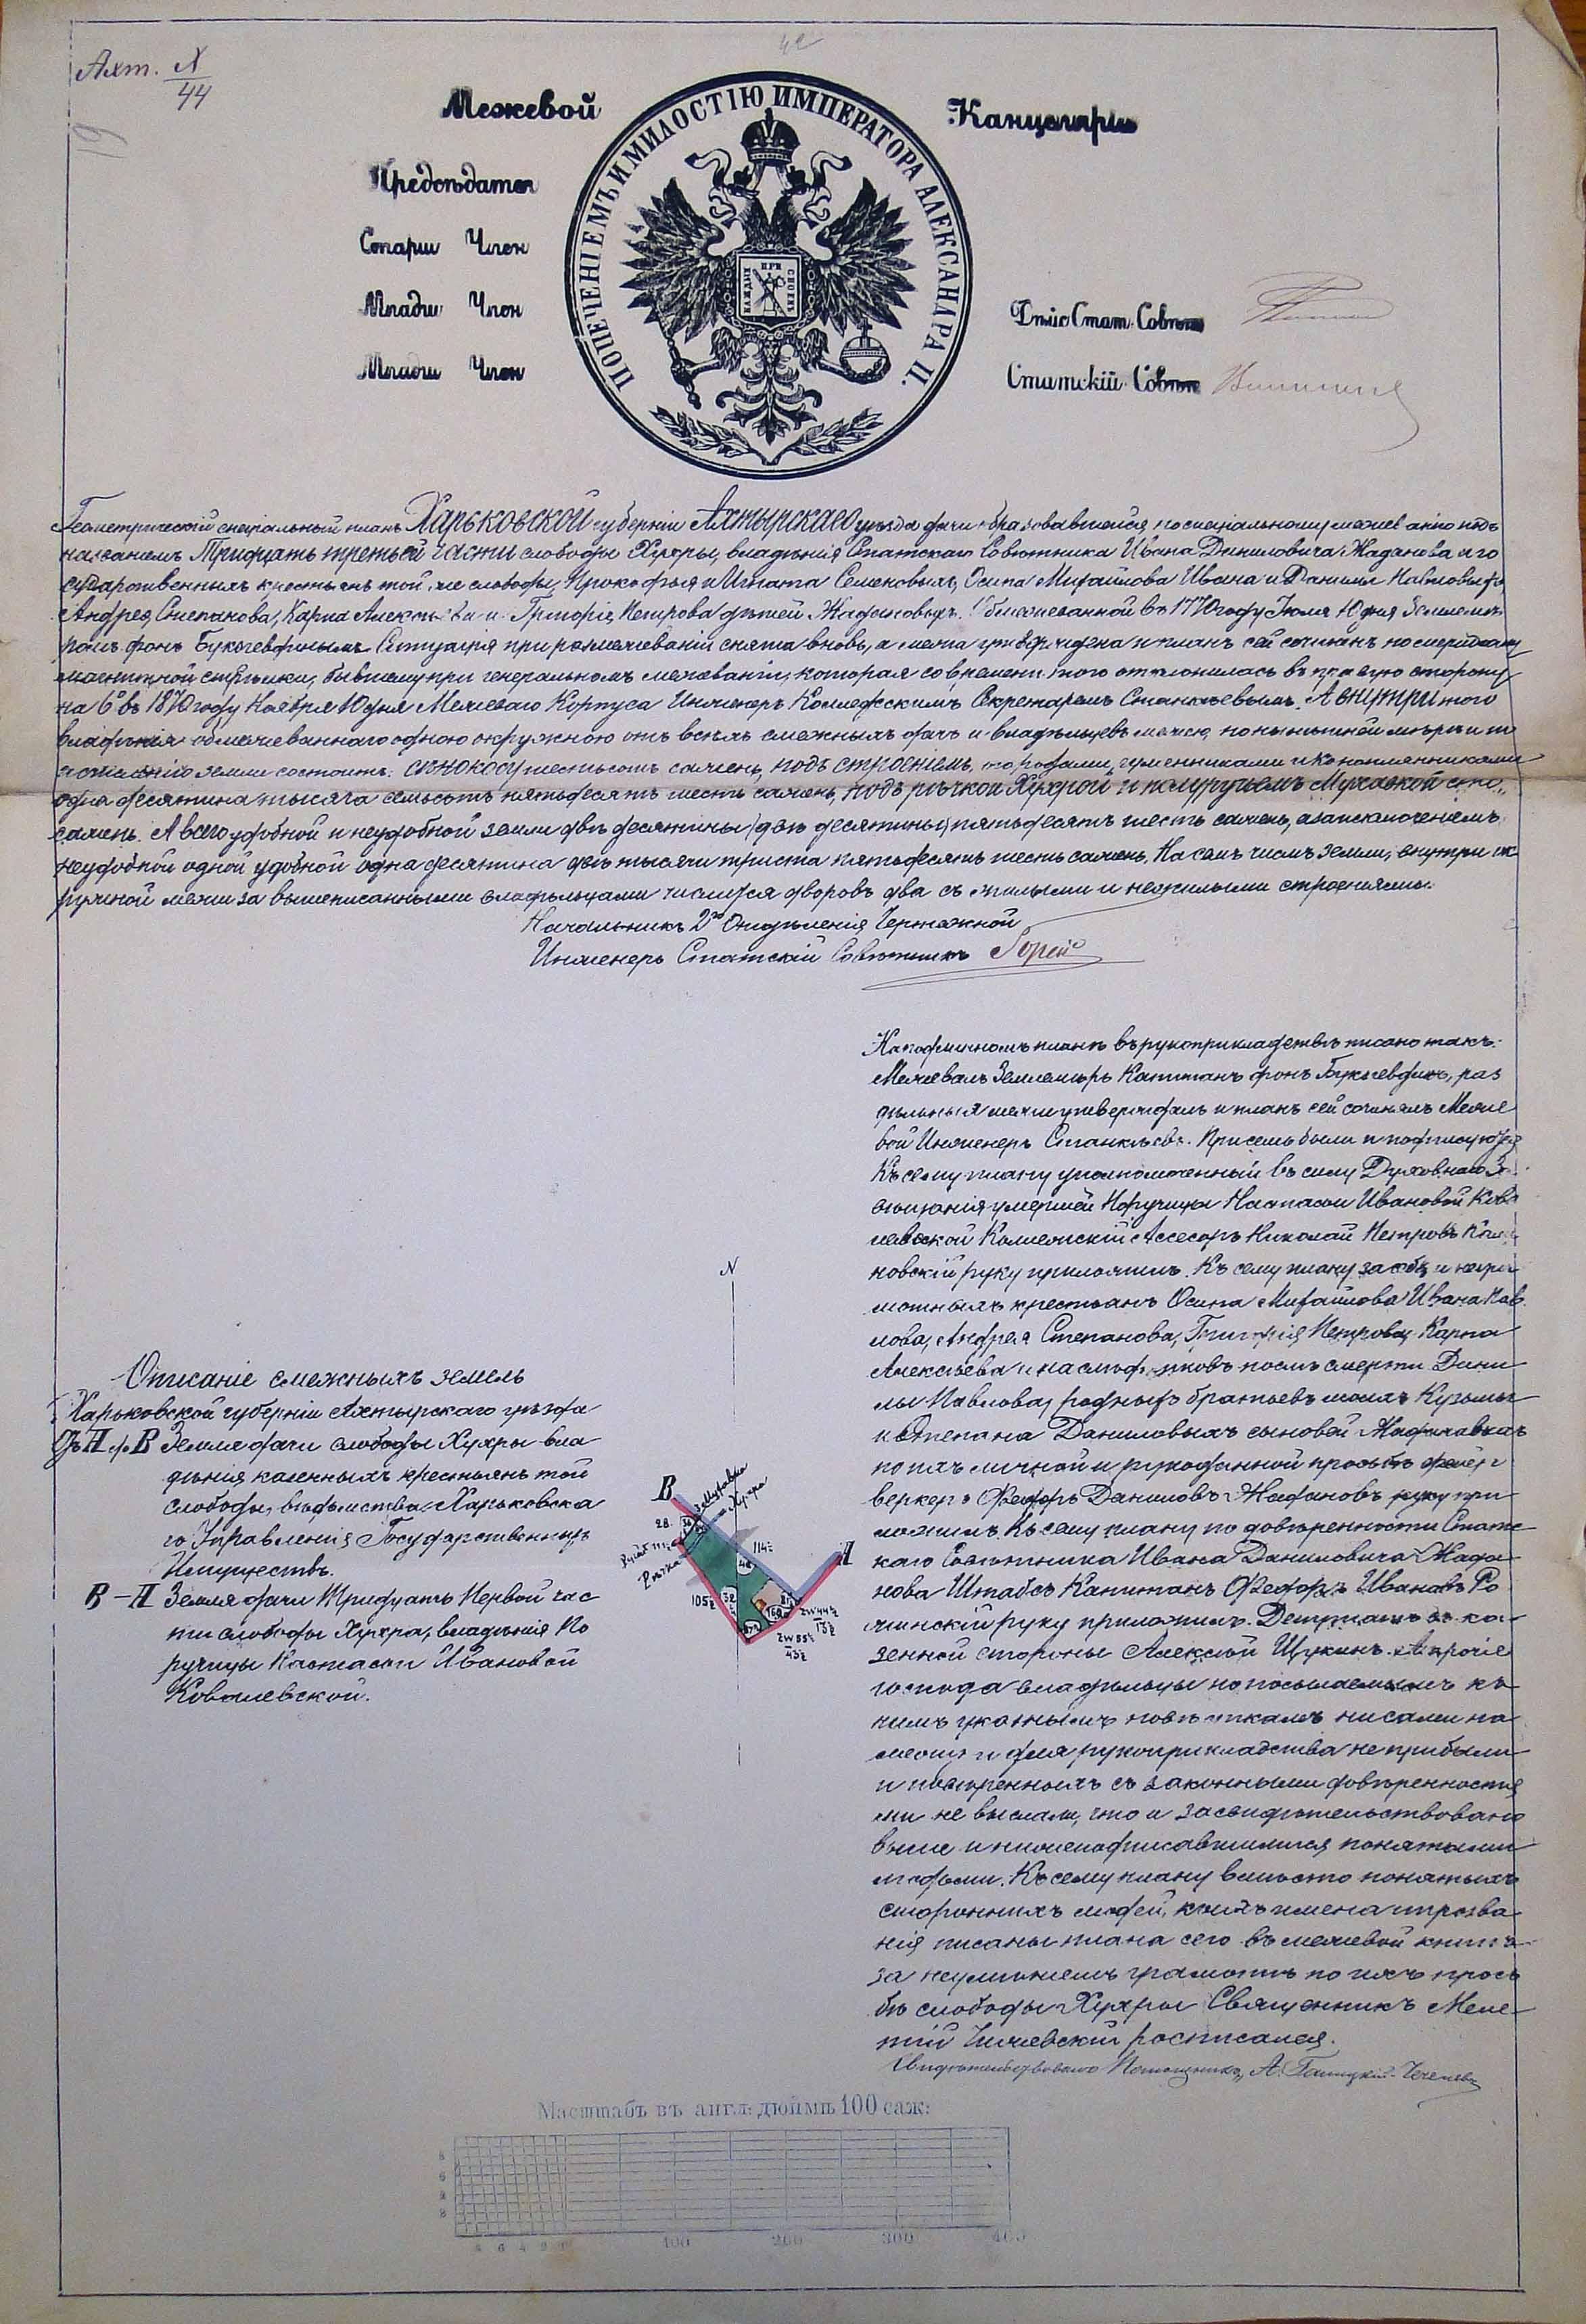 Ахт. X
44
Межевой Канцеляріи
ПОПЕЧЕНІЕМЪ И МИЛОСТІЮ ИМПЕРАТОРА АЛЕКСАНДРА II.
Предсѣдател
Старш Член
Младш Член
Младш Член
ПРИ СВОЕМЪ
Дѣйс Стат. Совѣт
Статскій Совѣт
Геометрическій спеціальный планъ Харьковской губерніи Ахтырскаго уѣзда дачи образовавшейся по спеціальному межеванію подъ
названіемъ Тридцать третьей части слободы Хухры, владѣнія Статскаго Совѣтника Ивана Даниловича Жаданова и го
сударственныхъ крестьянъ той же слободы, Прокофья и Игната Семеновыхъ, Осипа Михайлова Ивана и Данилы Павловыхъ,
Андрея Степанова, Карпа Алексѣева и Григорія Петрова дѣтей Жадановыхъ. Обмежеванной въ 1770 году Іюля 10 дня Землемѣ
ромъ фонъ Буксгевденымъ. Ситуація при размежеваніи снята вновь, а межа утверждена и планъ сей сочиненъ по меридіану
магнитной стрѣлки, бывшему при генеральномъ межеваніи, которая со времени того отклонилась въ правую сторону
на 6° въ 1870 году Ноября 10 дня Межеваго Корпуса Инженеръ Коллежскимъ Секретаремъ Станкѣевымъ. А внутри того
владѣнія обмежеваннаго одною окружною отъ всѣхъ смежныхъ дачъ и владѣльцевъ межею, по нынѣшней мѣрѣ и по
исчисленію земли состоитъ: сѣнокосу шестьсотъ саженъ, подъ строеніемъ, огородами, гуменниками и коноплянниками
одна десятина тысяча семьсотъ пятьдесятъ шесть саженъ, подъ рѣчкой Хухрой и полуручьемъ Мухавкой сто
саженъ. А всего удобной и неудобной земли двѣ десятины (двѣ десятины) пятьдесятъ шесть саженъ, а за исключеніемъ
неудобной одной удобной одна десятина двѣ тысячи триста пятьдесятъ шесть саженъ. На семъ числѣ земли, внутри ок
ружной межи за вышеписанными владѣльцами числится дворовъ два съ жилыми и нежилыми строеніями.
Начальникъ 2го Отдѣленія Чертежной
Инженеръ Статскій Совѣтникъ
На подлинномъ планѣ въ рукоприкладствѣ писано такъ:
Межевалъ Землемѣръ Капитанъ фонъ Буксгевденъ, раз
дѣльныя межи утверждалъ и планъ сей сочинялъ Меже
вой Инженеръ Станкѣевъ. При семъ были и подписуются
Къ сему плану уполномоченный въ силу Духовнаго За
вѣщанія умершей Поручицы Настасьи Ивановой Кова
левской Коллежскій Ассесоръ Николай Петровъ
новскій руку приложилъ. Къ сему плану за себя и негра
мотныхъ крестьянъ Осипа Михайлова Ивана Пав
лова, Андрея Степанова, Григорія Петрова, Карпа
Алексѣева и наслѣдниковъ послѣ смерти Дани
лы Павлова, родныхъ братьевъ моихъ Кузьмы
и Степана Даниловыхъ сыновей Жадановыхъ
по ихъ личной и рукоданной просьбѣ фейер
веркеръ Федоръ Даниловъ Жадановъ руку при
ложилъ. Къ сему плану по довѣренности Статс
каго Совѣтника Ивана Даниловича Жада
нова Штабсъ Капитанъ Федоръ Ивановъ Ро
чинскій руку приложилъ. Депутатъ съ ка
зенной стороны Алексѣй Щукинъ. А прочіе
господа владѣльцы по посылаемымъ къ
нимъ указнымъ повѣсткамъ ни сами на
межу и для рукоприкладства не прибыли
и повѣренныхъ съ законными довѣренностя
ми не выслали, что и засвидѣтельствовано
выше и нижеподписавшимися понятыми
людьми. Къ сему плану вмѣсто понятыхъ
стороннихъ людей, коихъ имена и прозва
нія писаны плана сего въ межевой книгѣ
за неумѣніемъ грамотѣ по ихъ прось
бѣ слободы Хухры Священникъ Меле
тій росписался.
Свидѣтельствовалъ Помощникъ А.
N
Описаніе смежныхъ земель
Харьковской губерніи Ахтырскаго уѣзда
Отъ А до В Земля дачи слободы Хухры вла
дѣнія казенныхъ крестьянъ той
слободы, вѣдомства Харьковска
го Управленія Государственныхъ
Имуществъ.
В – А Земля дачи Тридцать Первой час
ти слободы Хухра, владѣнія По
ручицы Настасьи Ивановой
Ковалевской.
В
А
Мухавка
Хухра
Ручей
Рѣчка
28.
114½
105½
ZW 44½
13½
ZW 55½
43½
Масштабъ въ англ: дюймѣ 100 саж:
8 6 4 2
100 200 300 400